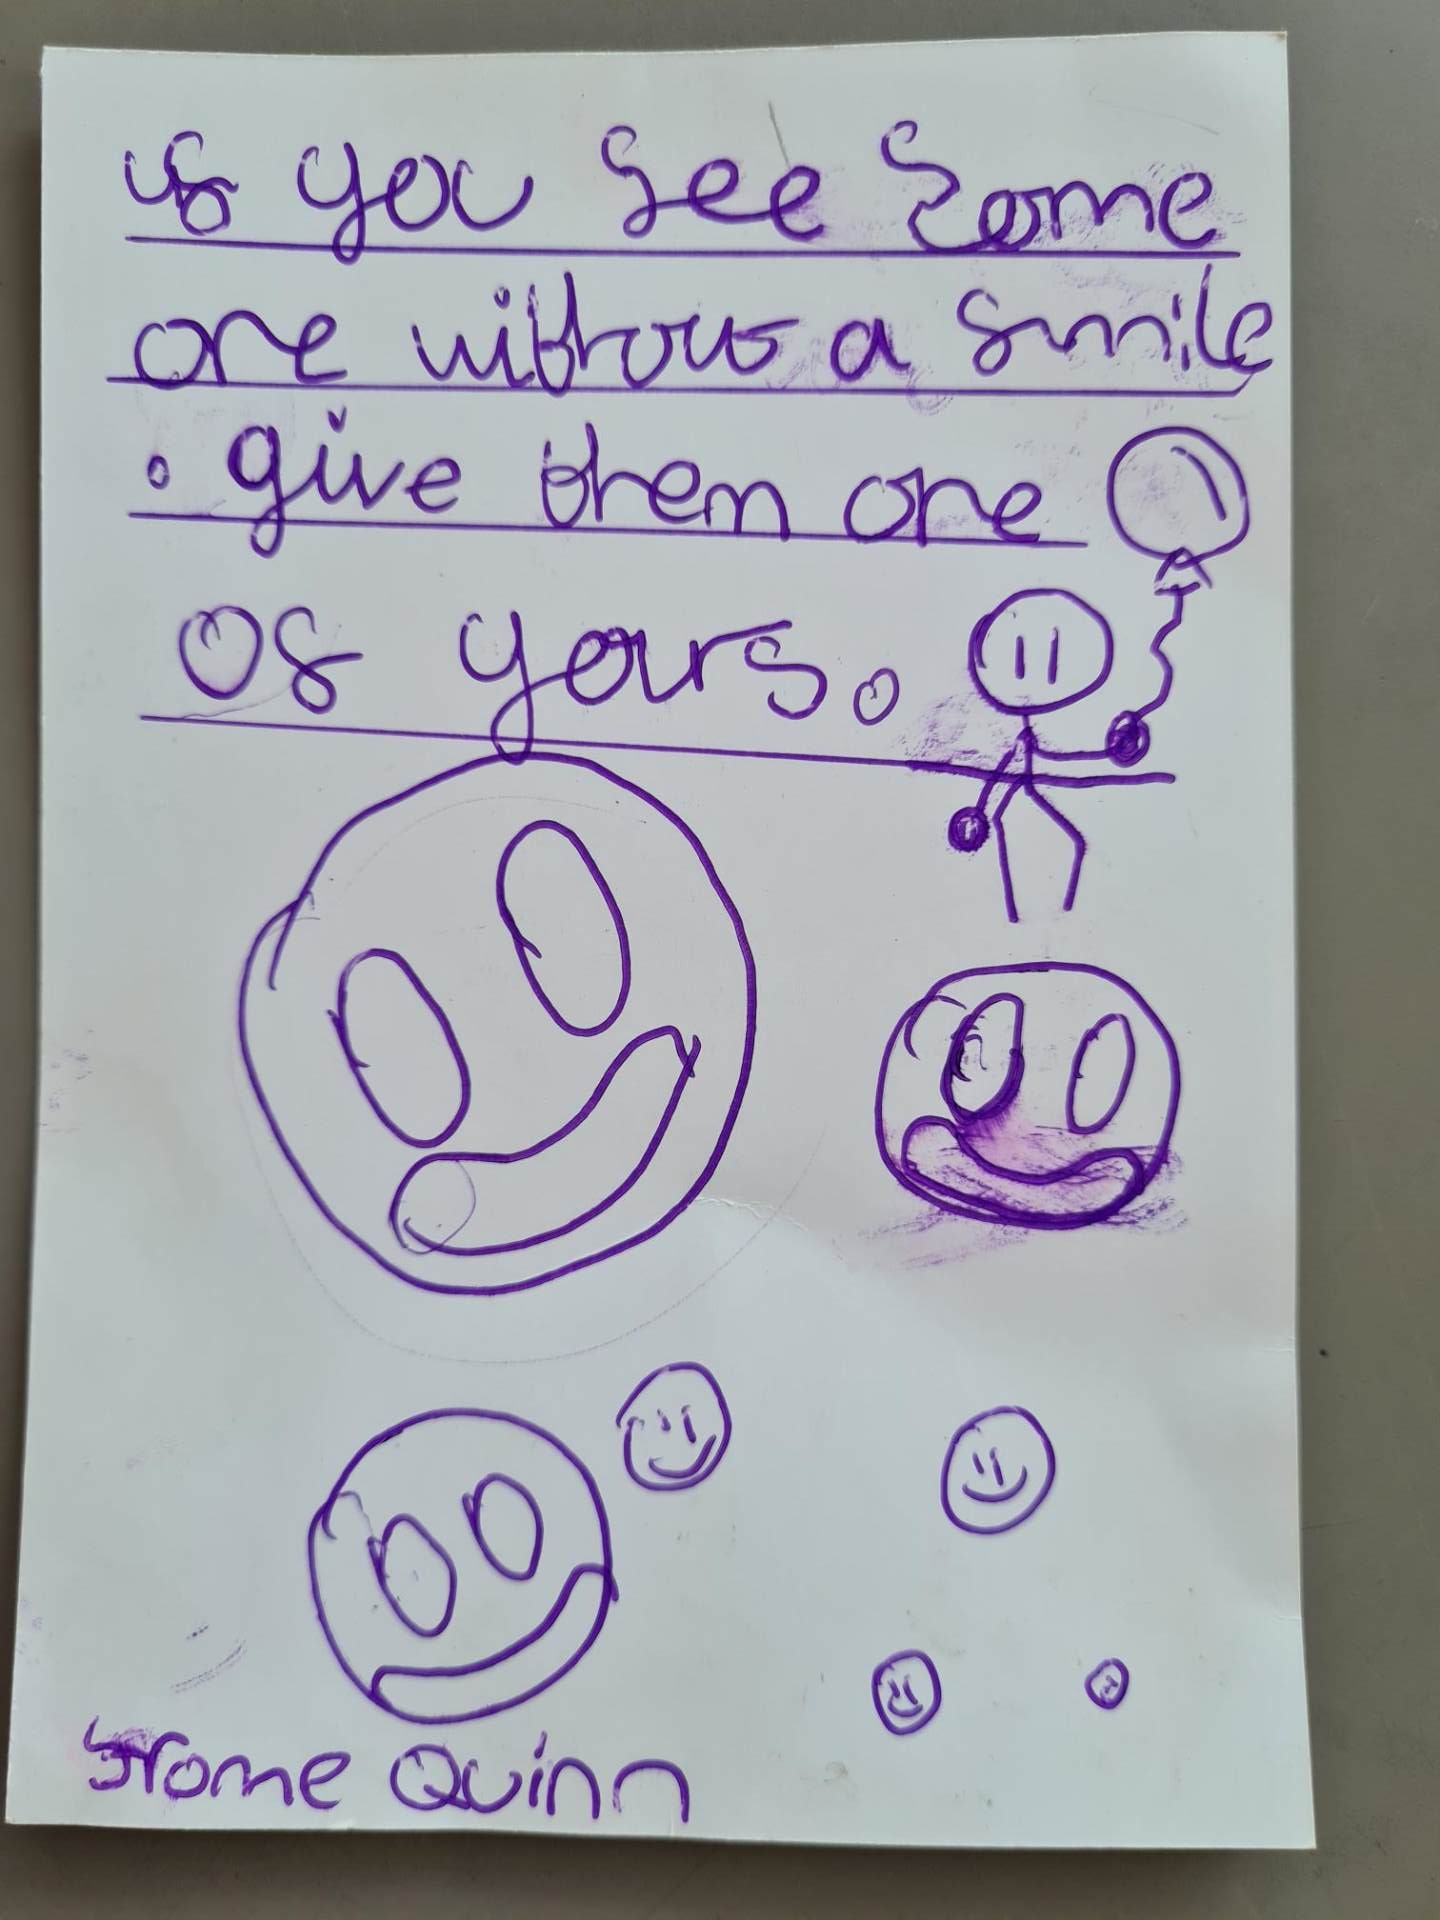 if you see some
one withous a smile
. give them one
of yours.
from Quinn